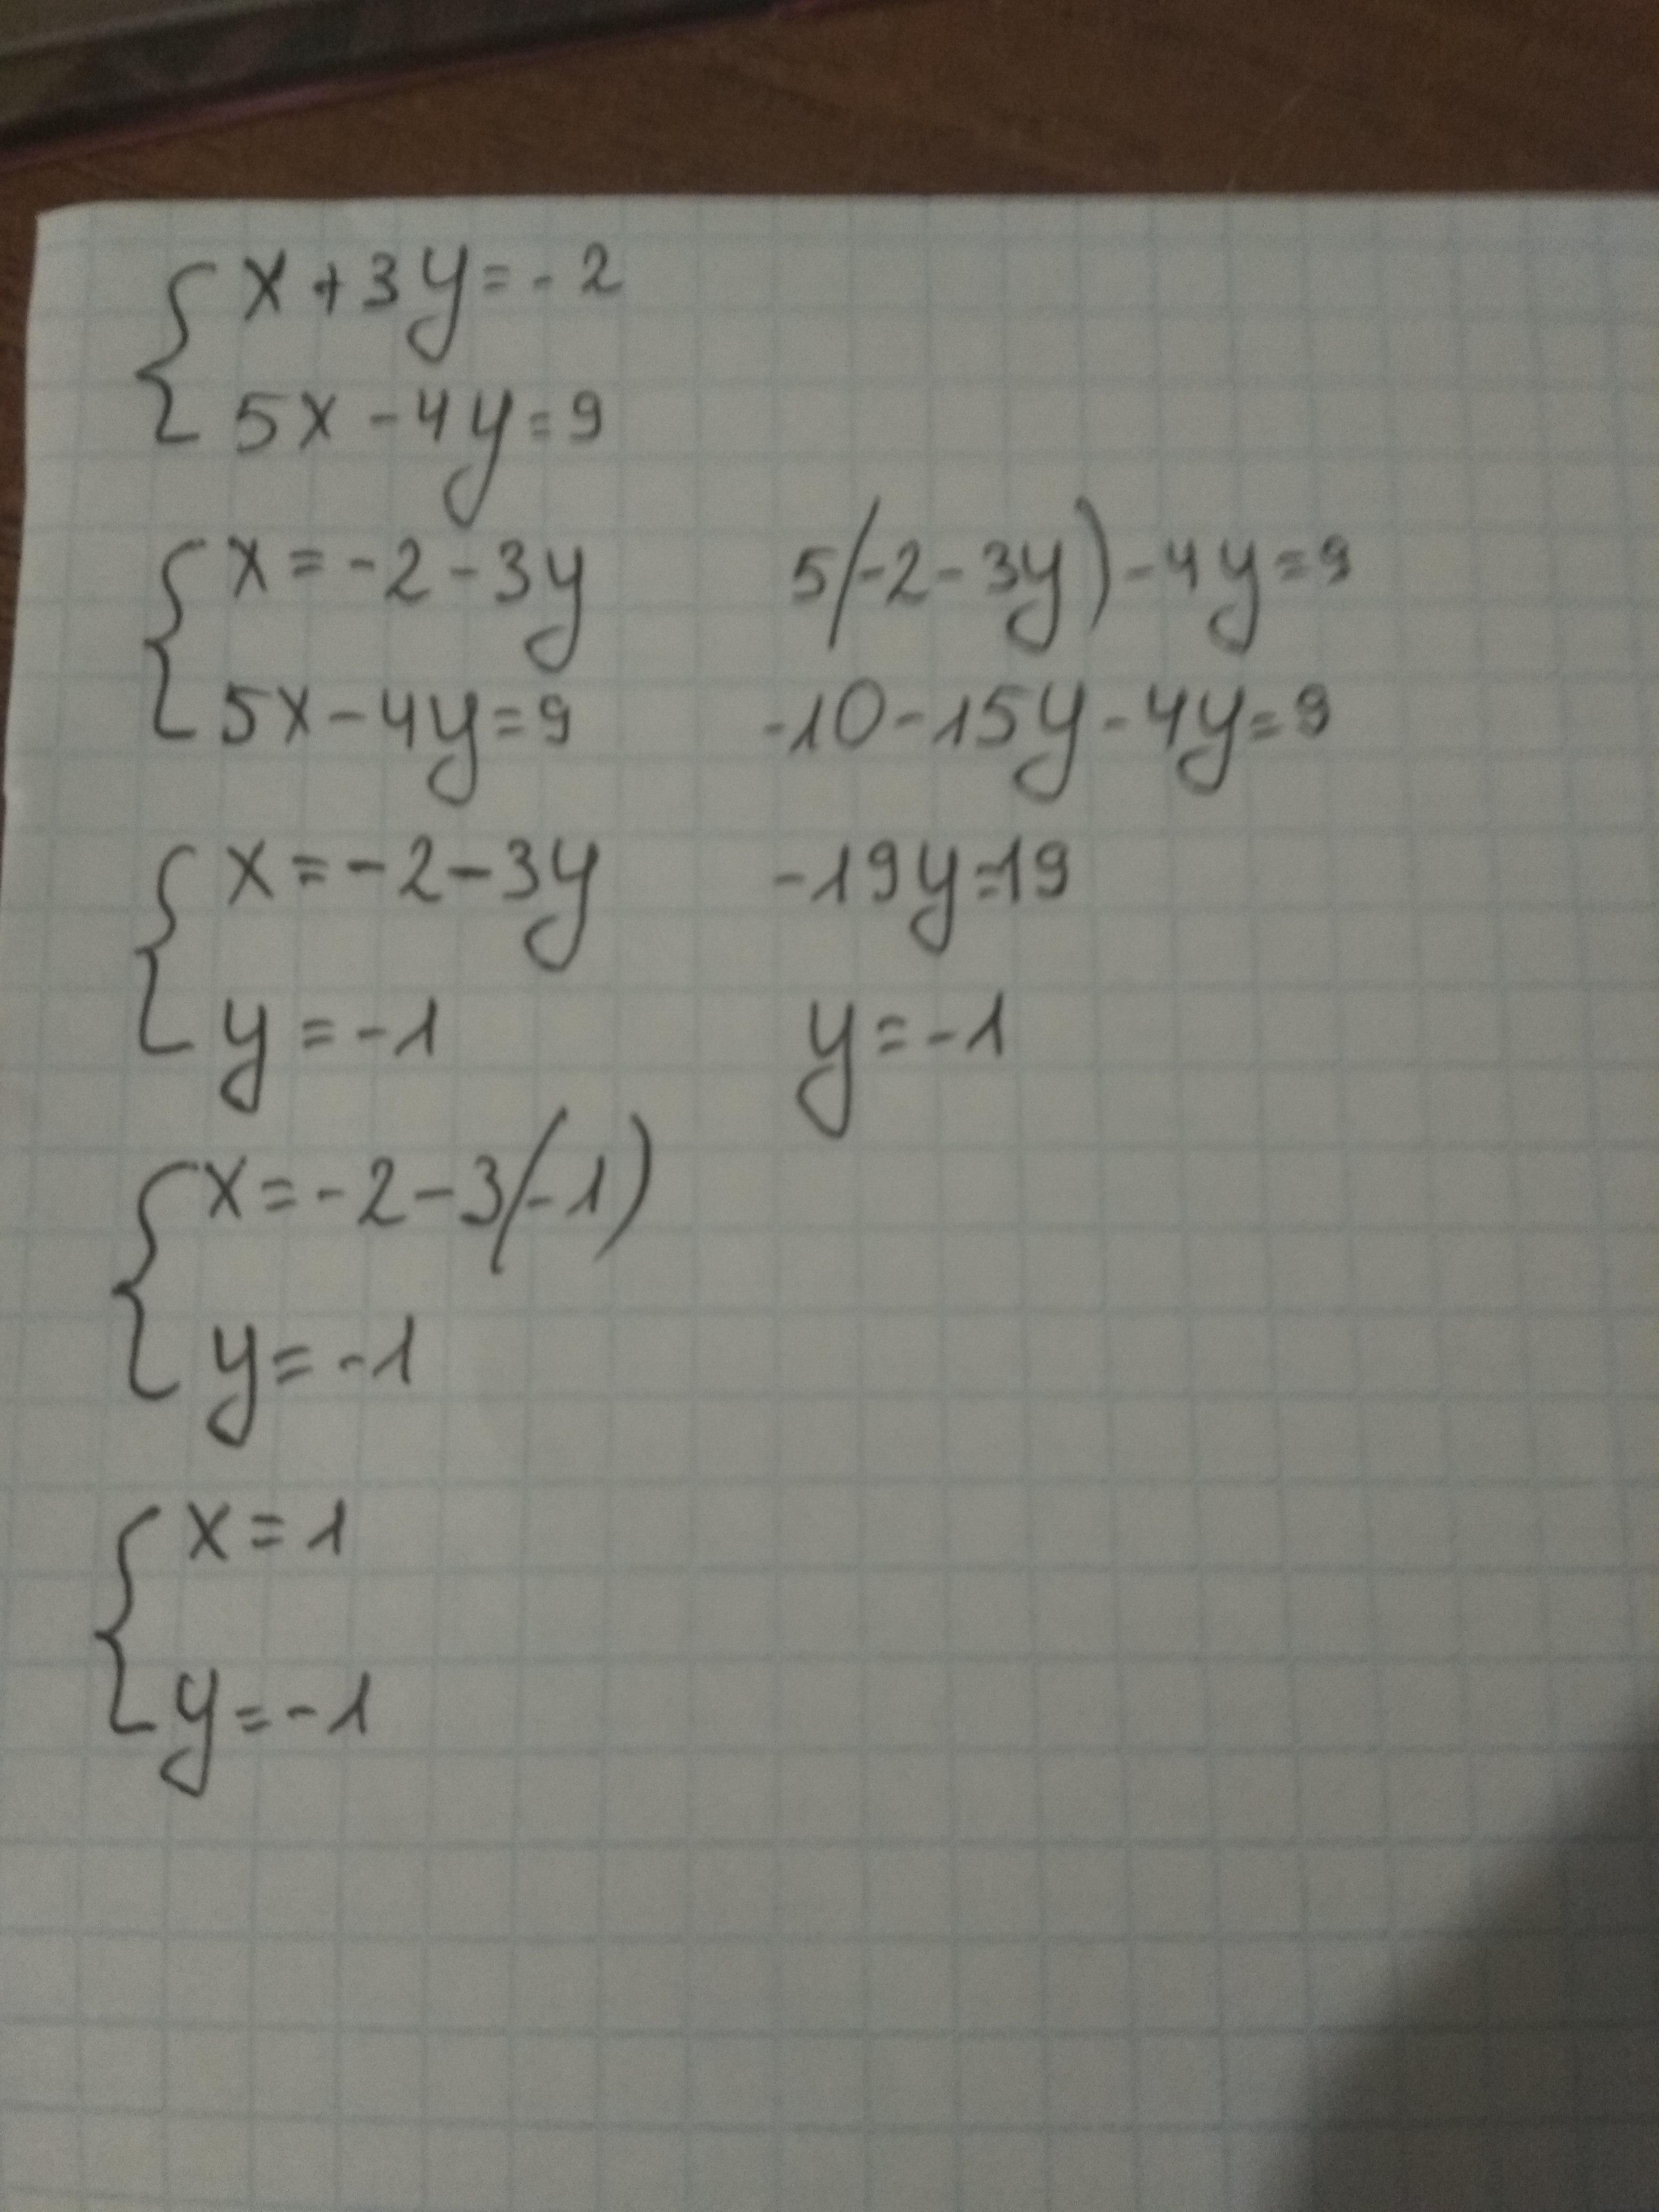 { x + 3y = -2
5x - 4y = 9
{ x = -2 - 3y
5x - 4y = 9
5(-2 - 3y) - 4y = 9
-10 - 15y - 4y = 9
{ x = -2 - 3y
y = -1
-19y = 19
y = -1
{ x = -2 - 3(-1)
y = -1
{ x = 1
y = -1